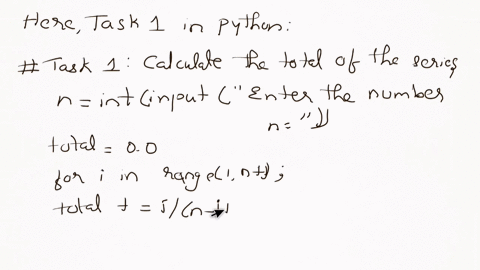 Here, Task 1 in python:
# Task 1: Calculate the total of the series
n = int(input ("Enter the number
n = "))
total = 0.0
for i in range(1, n+1);
total + = i/(n-i